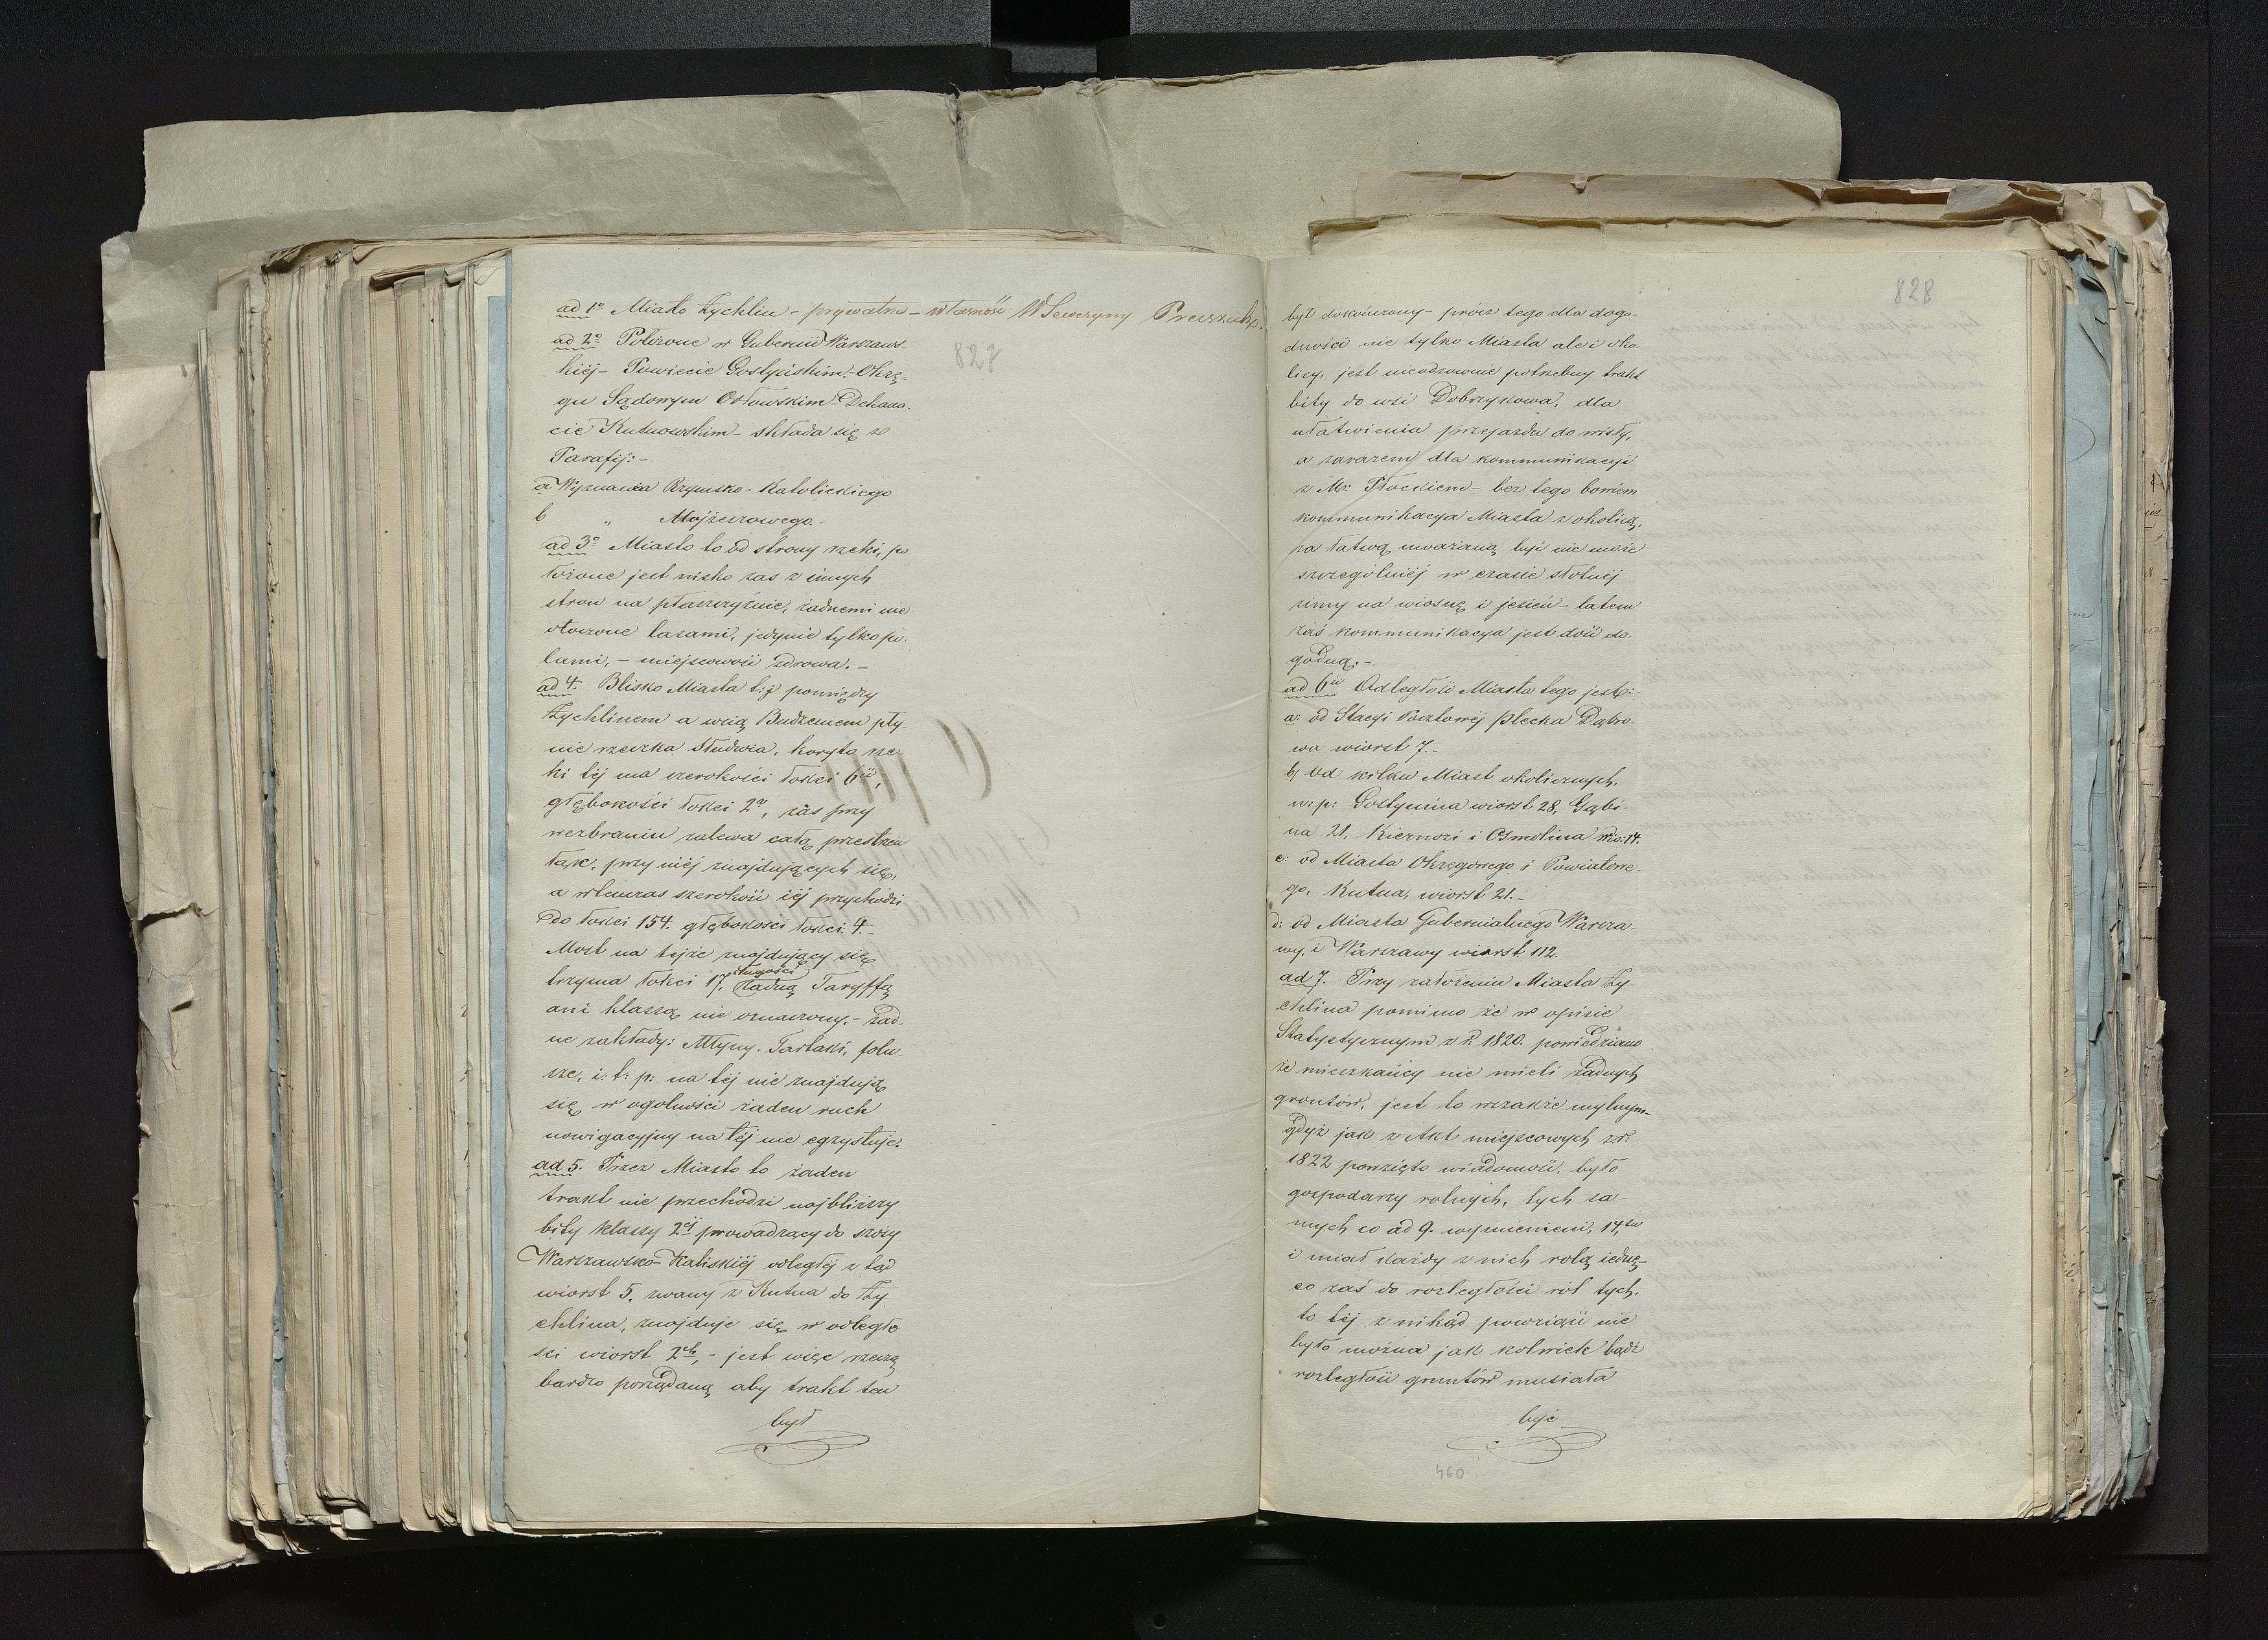 827
ad 1o Miasto Żychlin - prywatne - własność W Seweryny Pruszak.
ad 2o Położone w Gubernii Warszaws-
kiéj - Powiecie Gostyńskim, - Okrę-
gu Sądowym Orłowskim - Dekana-
cie Kutnowskim - składa się z
Parafij: -
a Wyznania Rzymsko-Katolickiego
b „ Mojżeszowego. -
ad 3o Miasto to od strony rzeki, po
łożone jest nisko zas z innych
stron na płaszczyźnie, żadnemi nie
otoczone lasami, jedynie tylko po-
lami, - miejscowość zdrowa. -
ad 4. Blisko Miasta t:j pomiędzy
Żychlinem a wsią Budzeniem pły-
nie rzeczka Słudwia, koryto rze-
ki téj ma szerokości łokci 6ść,
głębokości łokci 2a, zaś przy
wezbraniu zalewa całą przestrzeń
łąk, przy niéj znajdujących się,
a wtenczas szerokość iéj przychodzi
do łokci 154. głębokości łokci 4. -
Most na tejże znajdujący się
trzyma łokci 17. długości żadną Taryffą
ani klassą nie oznaczony. - żad-
ne zakłady: Młyny, Tartaki, folu-
sze, i: t: p: na téj nie znajdują
się w ogolności żaden ruch
nowigacyjny na téj nie egzystuje.
ad 5. Przez Miasto to żaden
trakt nie przechodzi najbliższy
bity klassy 2éj prowadzący do szosy
Warszawsko-Kaliskiéj odległéj z tąd
wiorst 5. zwany z Kutna do Ży-
chlina, znajduje się w odległo
ści wiorst 2ch, - jest więc rzeczą
bardzo pożądaną aby trakt ten
był
828
był dokończony - prócz tego dla dogo-
dności nie tylko Miasta ale i oko-
licy, jest nieodzownie potrzebny trakt
bity do wsi Dobrzykowa, dla
ułatwienia przejazdu do wisły,
a zarazem dla kommunikacyi
z M: Płockiem - bez tego bowiem
kommunikacya Miasta z okolicą,
za łatwą uważaną być nie może
szczególniéj w czasie słotnéj
zimy na wiosnę i jesień - latem
zaś kommunikacya jest dość do-
godną. -
ad 6ść Odległość Miasta tego jest: -
a: od Stacyi Pocztowéj Plecka Dąbro-
wa wiorst 7. -
b, Od kilku Miast okolicznych,
n: p: Gostynina wiorst 28, Gąbi-
na 21, Kiernozi i Osmolina wio: 14.
c: od Miasta Okręgowego i Powiatowe-
go, Kutna, wiorst 21. -
d: od Miasta Gubernialnego Warsza-
wy, i Warszawy wiorst 112.
ad 7. Przy założeniu Miasta Ży
chlina pomimo że w opisie
Statystycznym z r. 1820. powiedziano
że mieszkańcy nie mieli żadnych
grontów, jest to wszakże mylnym -
gdyż jak z Akt miejscowych z r.
1822 powzięto wiadomość, było
gospodarzy rolnych, tych sa-
mych co ad 9. wymienieni, 14tu
i miał każdy z nich rolą iedną -
co zaś do rozległości ról tych,
to téj z nikąd powziąść nie
było można jak kolwiek bądź
rozległość gruntów musiała
być
460